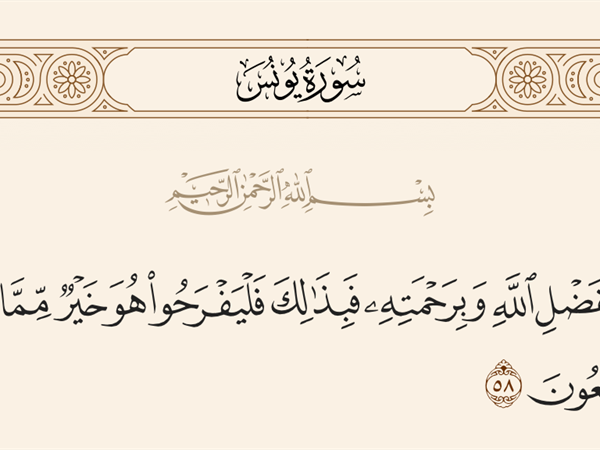 سُورَةُ يُونُسَ
بِسْمِ ٱللَّهِ ٱلرَّحْمَٰنِ ٱلرَّحِيمِ
فَضْلِ ٱللَّهِ وَبِرَحْمَتِهِۦ فَبِذَٰلِكَ فَلْيَفْرَحُوا۟ هُوَ خَيْرٌ مِّمَّا
عُونَ ٥٨